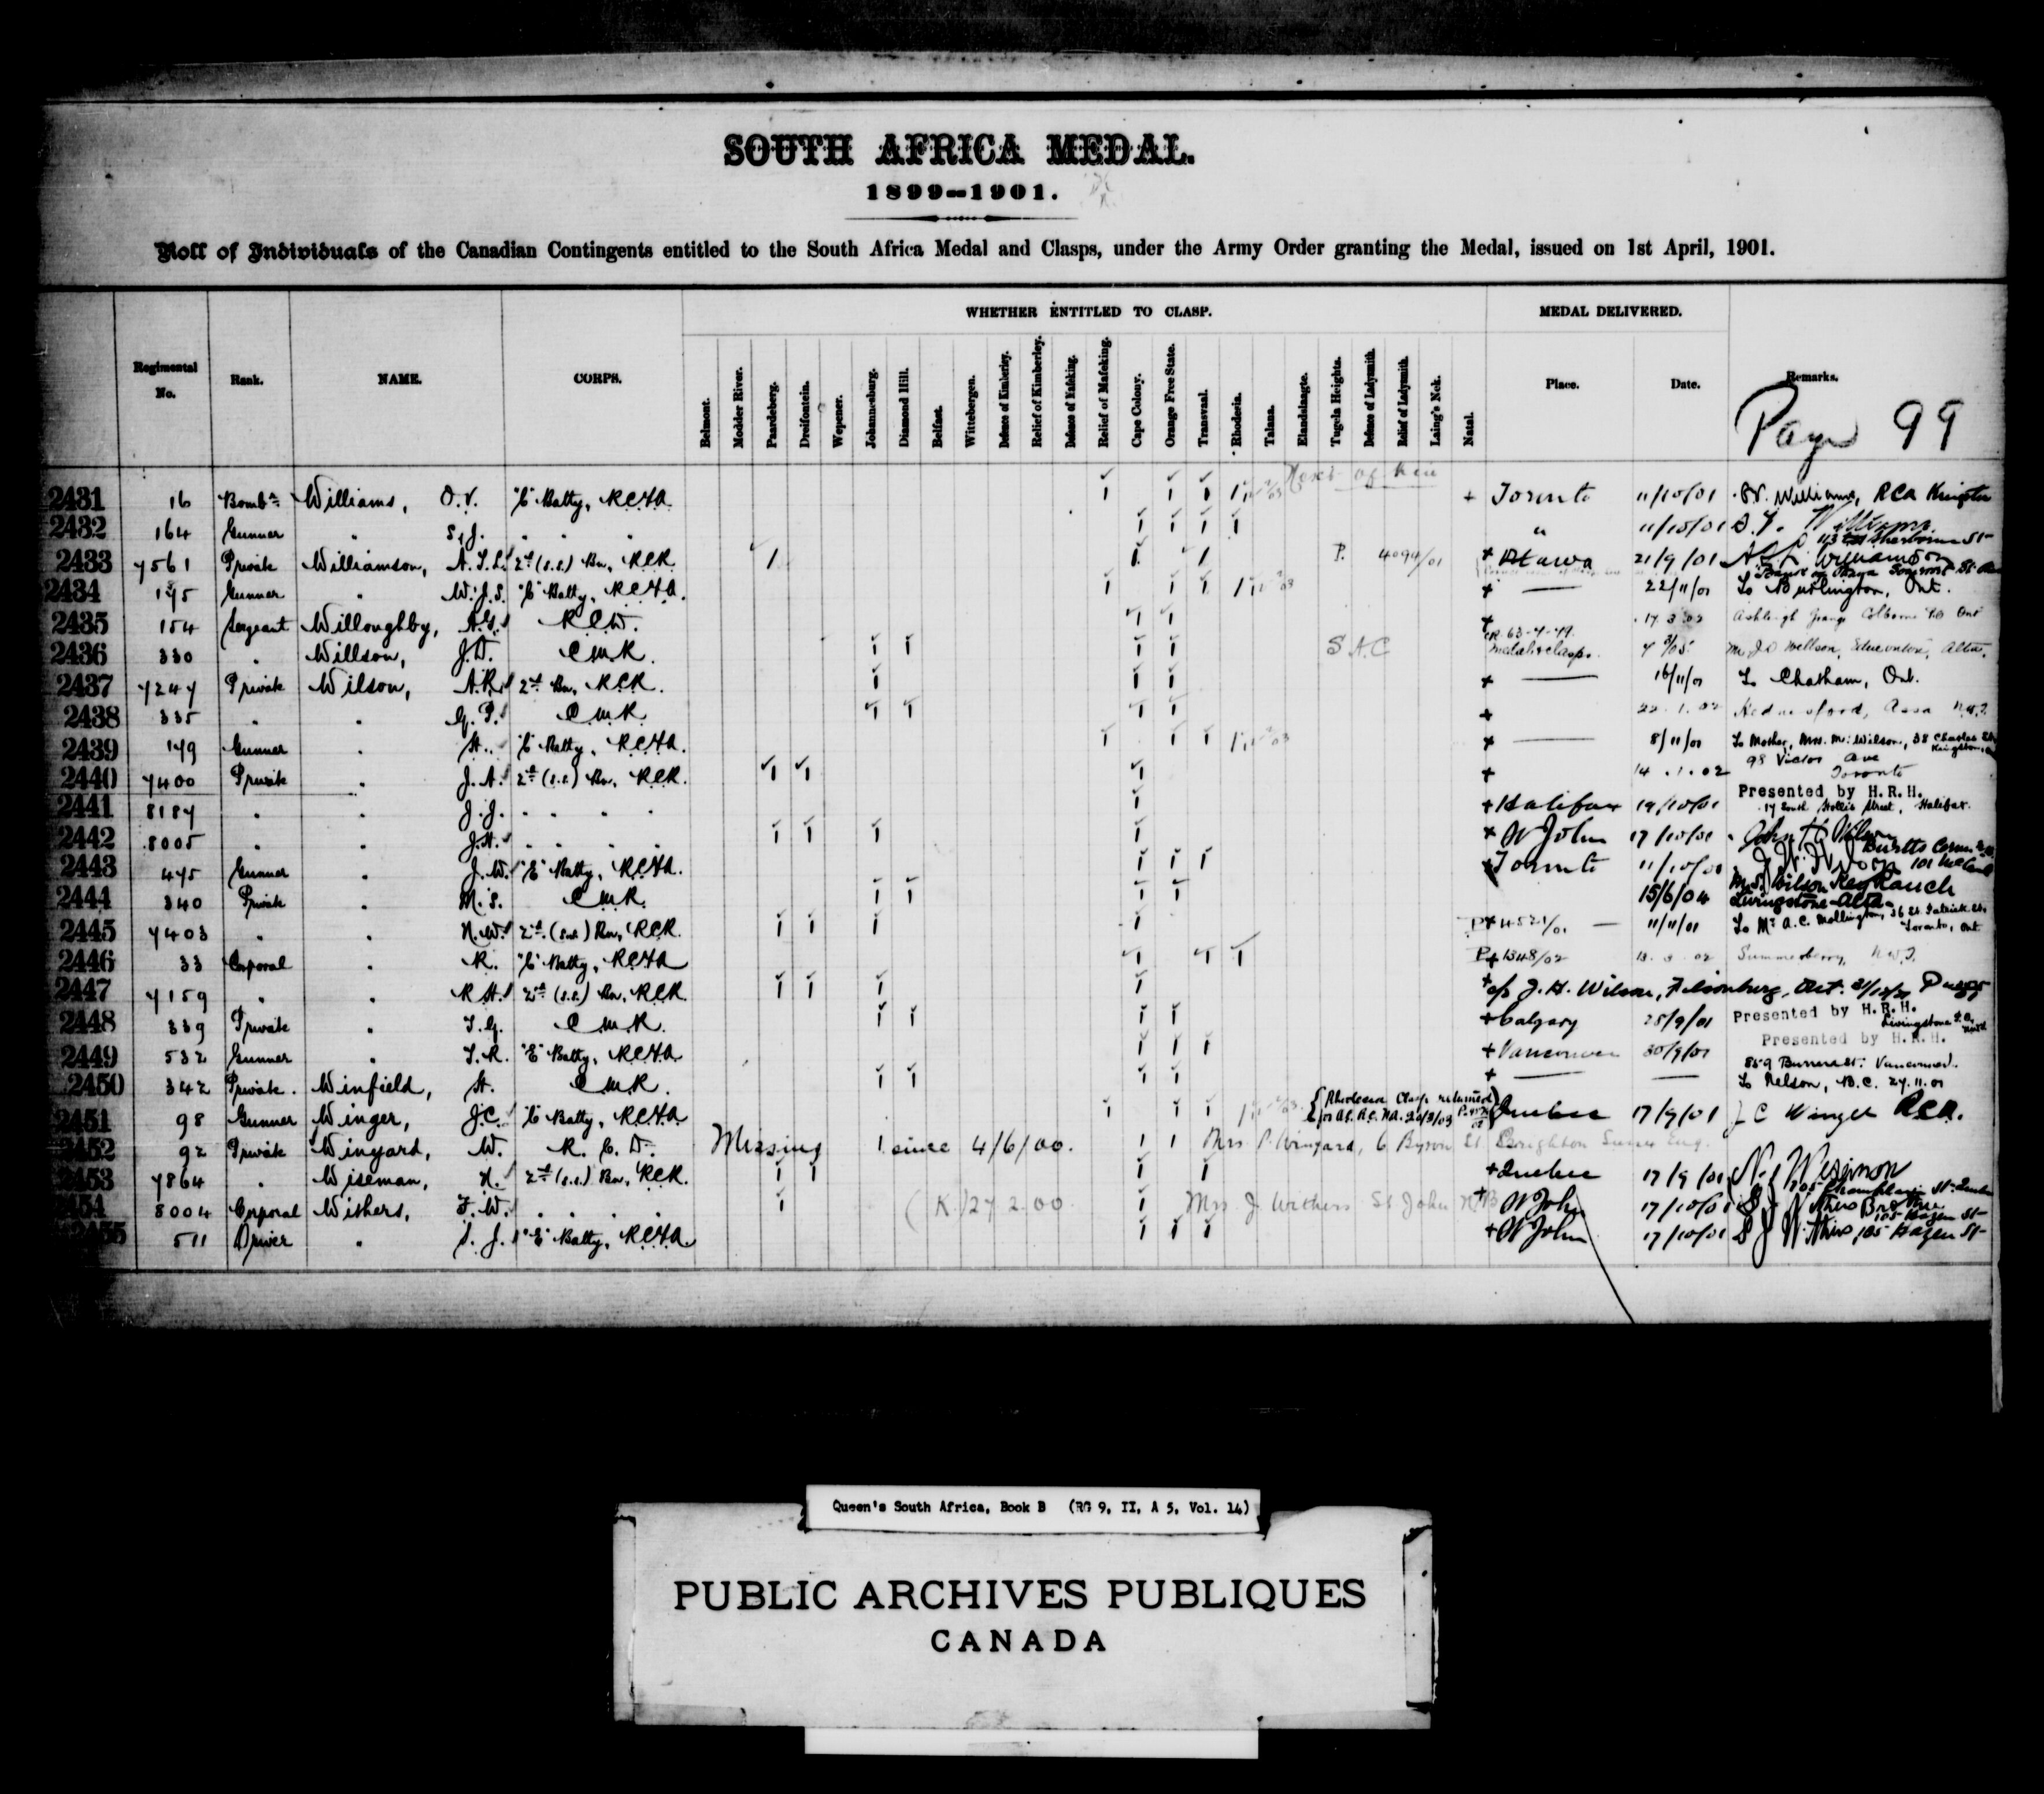 SOUTH AFRICA MEDAL.
1899--1901.
Roll of Individuals of the Canadian Contingents entitled to the South Africa Medal and Clasps, under the Army Order granting the Medal, issued on 1st April, 1901.
WHETHER ENTITLED TO CLASP. MEDAL DELIVERED.
Regimental No. Rank. NAME. CORPS. Belmont. Modder River. Paardeberg. Dreifontein. Wepener. Johannesburg. Diamond Hill. Belfast. Wittebergen. Defence of Kimberley. Relief of Kimberley. Defence of Mafeking. Relief of Mafeking. Cape Colony. Orange Free State. Transvaal. Rhodesia. Talana. Elandslaagte. Tugela Heights. Defence of Ladysmith. Relief of Ladysmith. Laing's Nek. Natal. Place. Date. Remarks.
Page 99
2431 16 Bombr Williams, O.V. "C" Batty, RCFA 1 1 1 1 + Toronto 11/10/01 Williams, RCA Kingston
2432 164 Gunner " S.J. " " " 1 1 1 1 " 11/10/01 S.J. Williams
2433 7561 Private Williamson, A.S.L. 2nd (s.s.) Bn, RCR 1 1 1 P. 4094/01 + Ottawa 21/9/01 Williamson
2434 Gunner " W.J.S. "C" Batty, RCFA. 1 1 1 1 + — 22/11/01 To Burlington, Ont.
2435 154 Sergeant Willoughby, A.G. RCD. 1 1 + 17.3.02 Ashleigh Grange Colborne PO Ont
2436 330 " Willson, J.D. CMR. 1 1 1 1 S A C Medal & clasps. Mr J D Willson, Edmonton, Alta.
2437 7247 Private Wilson, A.R. 2nd Bn, RCR. 1 1 1 + — 16/11/01 To Chatham, Ont.
2438 335 " " G.P. CMR 1 1 1 1 + 22.1.02 Hednesford, Assa N.W.T.
2439 149 Gunner " H. "C" Batty, RCFA. 1 1 1 1 + — 8/11/01 To Mother, Mrs. M. Wilson, 38 Charles St Kingston,
2440 7400 Private " J.A. 2nd (s.s.) Bn, RCR. 1 1 1 + 14.1.02 98 Victor Ave Toronto
2441 8187 " " J.J. " " " 1 + Halifax 19/10/01 Presented by H.R.H. 17 South Hollis Street, Halifax.
2442 8005 " " J.H. " " " 1 1 1 1 + St John 17/10/01 John H Wilson Burtts Corner
2443 475 Gunner " J.W. "E" Batty, RCFA. 1 1 1 + Toronto 11/10/01 J.W. Wilson 101
2444 340 Private " M.S. CMR. 1 1 1 1 15/6/04 M.S. Wilson Ranch Livingstone Alta
2445 7403 " " N.W. 2nd (s.s.) Bn, RCR. 1 1 1 1 P + 4521/01 — 11/11/01 To Mr A.C. Mollington, 36 St Patrick St, Toronto, Ont
2446 33 Corporal " R. "C" Batty, RCFA 1 1 1 P + 1348/02 13.3.02 Summerberry, N.W.T.
2447 7159 " " R H. 2nd (s.s.) Bn, RCR. 1 1 1 1 + c/o J. H. Wilson, Tilsonburg, Ont.
2448 339 Private " T.G. CMR. 1 1 1 1 + Calgary 28/9/01 Presented by H.R.H. Livingstone P.O.
2449 532 Gunner " T.R. "E" Batty, RCFA 1 1 1 + Vancouver 30/9/01 Presented by H.R.H. 859 Burrard St. Vancouver.
2450 342 Private. Winfield, H. CMR. 1 1 1 1 + — — To Nelson, B.C. 27.11.01
2451 98 Gunner Winger, J.C. "C" Batty, RCFA 1 1 1 1 Rhodesian Clasp returned 20/3/03 Quebec 17/9/01 J C Winger RCA.
2452 92 Private Winyard, W. R.C.D. Missing 1 since 4/6/00. 1 1 Mrs P. Wingard, 6 Byron St Brighton Eng.
2453 7864 " Wiseman, N. 2nd (s.s.) Bn, RCR. 1 1 1 1 + Quebec 17/9/01 N. Wiseman 205 Champlain St. Quebec
2454 8004 Corporal Withers, F.W. " " " 1 (K.) 27 2.00 1 Mrs J Withers St John NB + St John 17/10/01 Withers Brother 105 Hazen St
2455 511 Driver " S.J. "E" Batty, RCFA. 1 1 1 + St John 17/10/01 S J Withers 105 Hazen St
Queen's South Africa, Book B (RG 9, II, A 5, Vol. 14)
PUBLIC ARCHIVES PUBLIQUES
CANADA